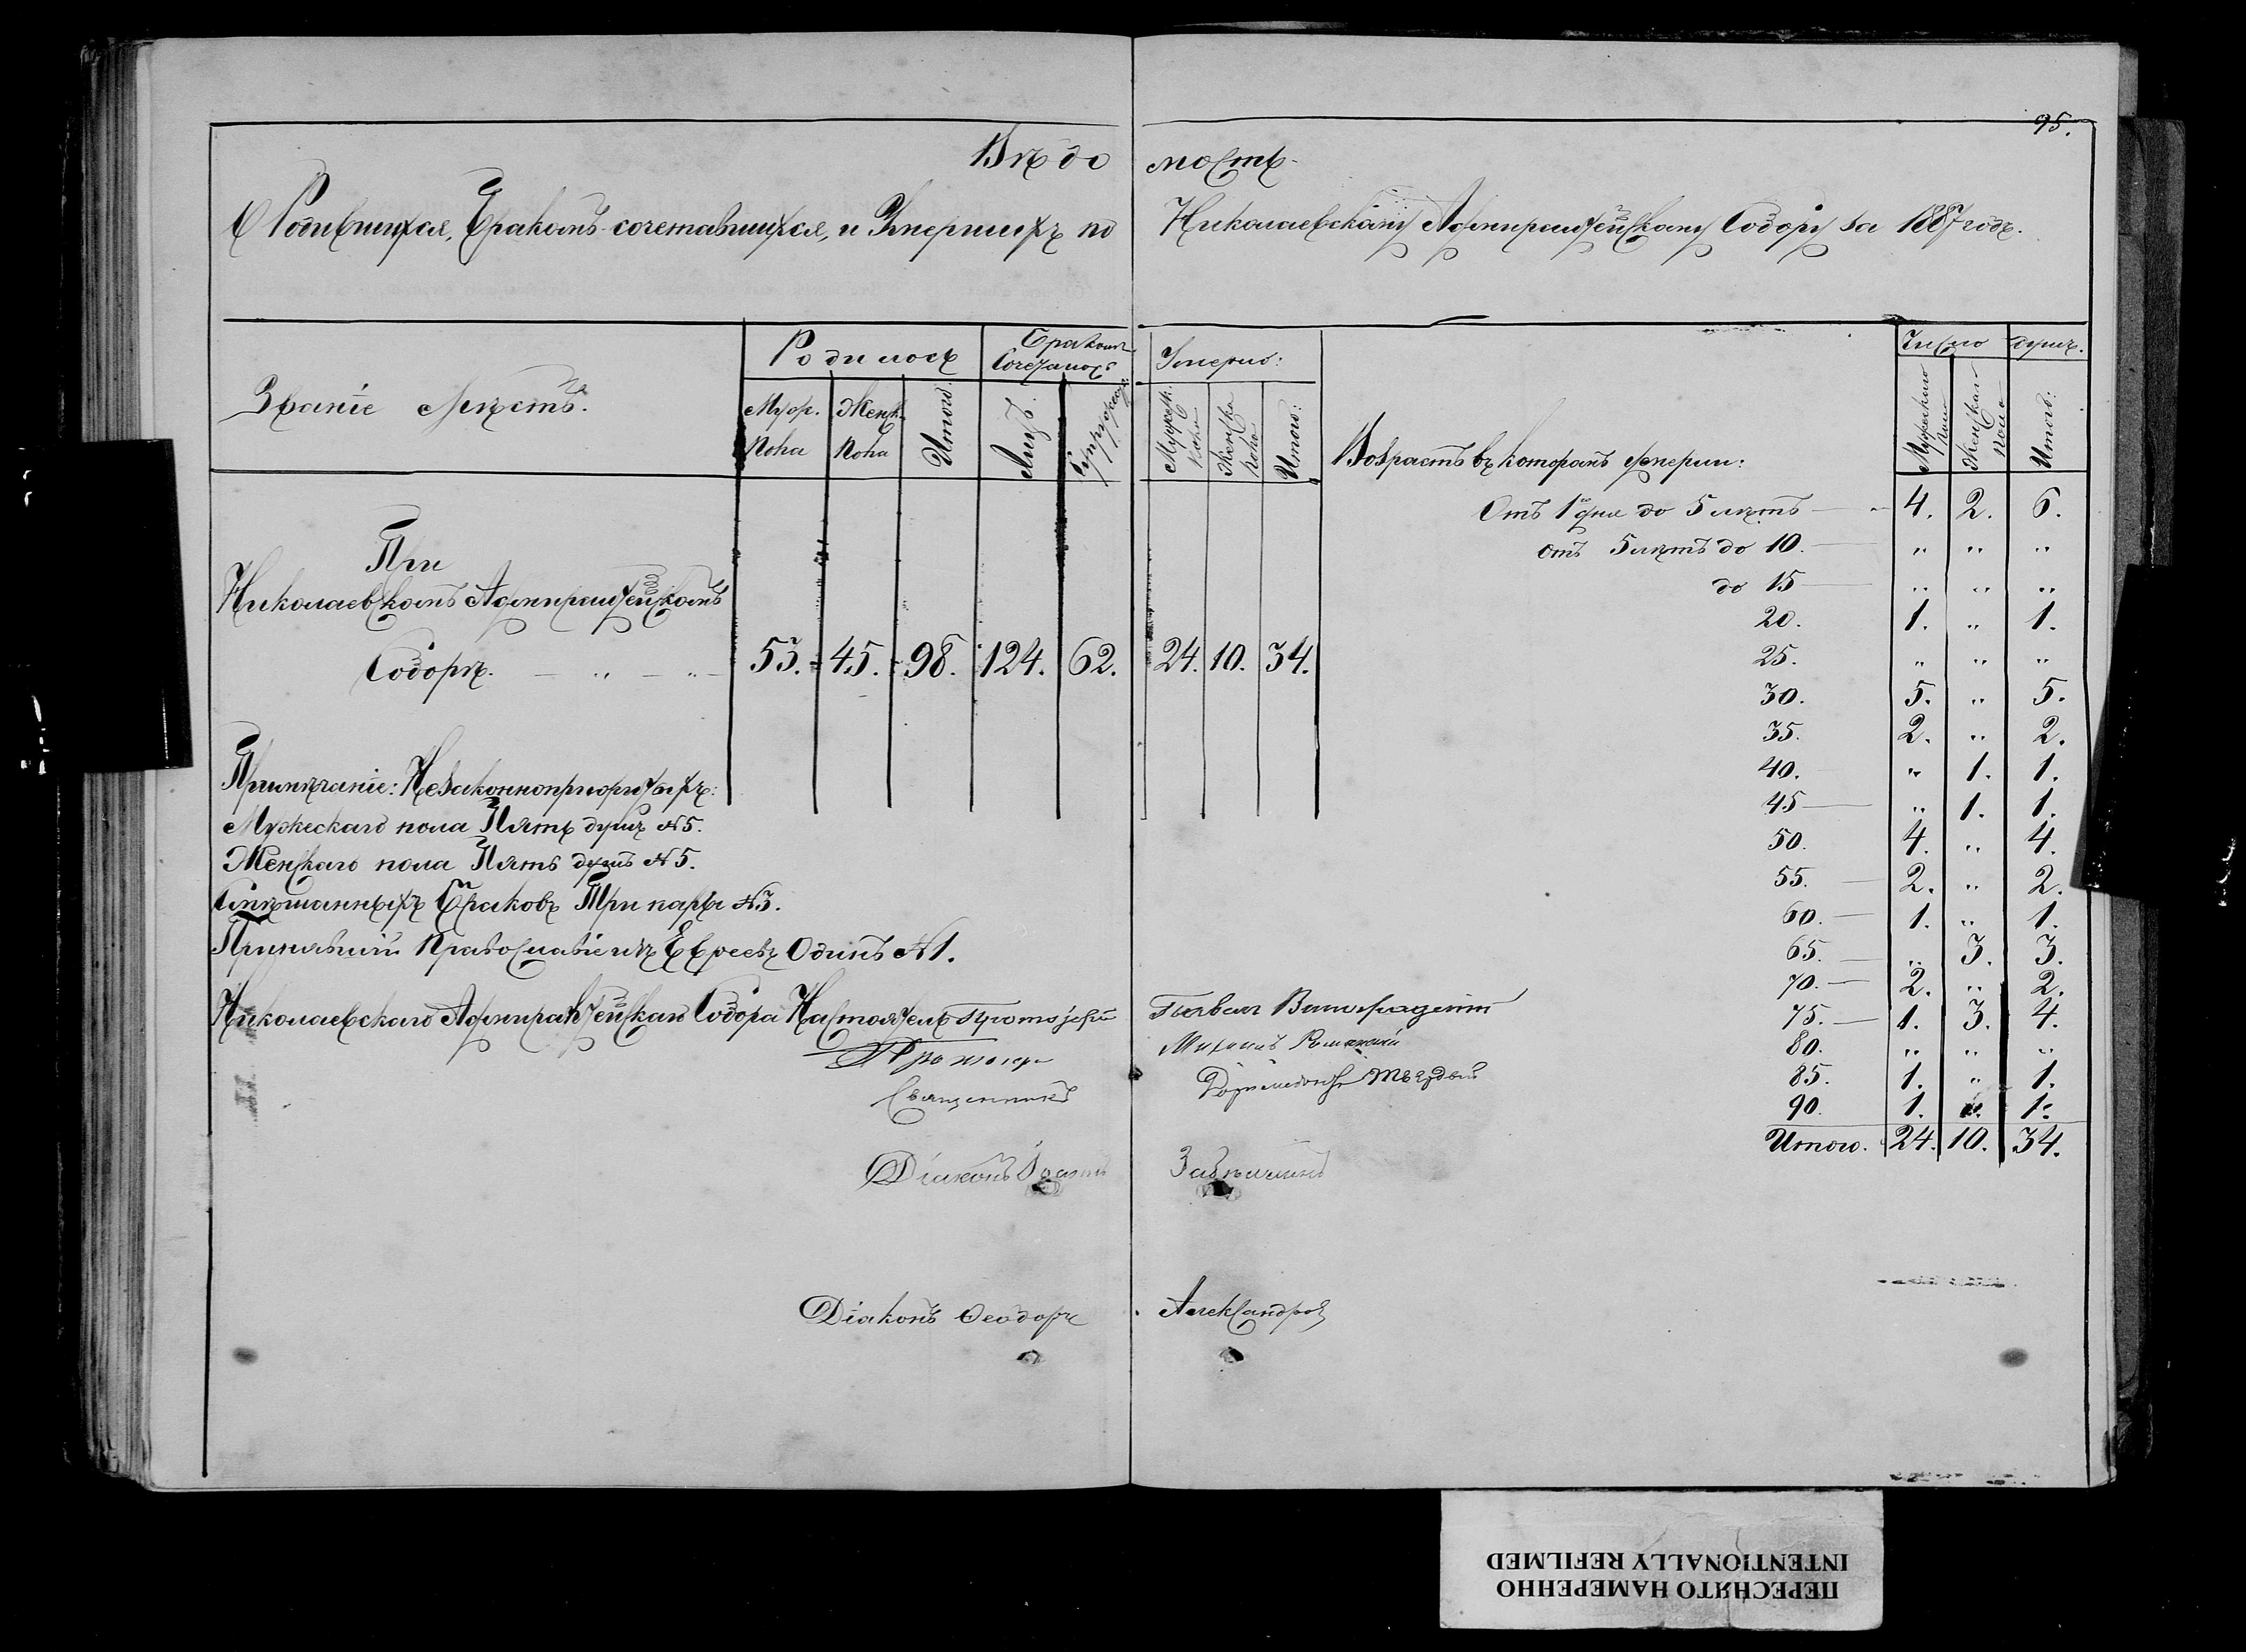 95.
Вѣдомость
О Родившихся, Бракомъ сочетавшихся, и Умершихъ по Николаевскому Адмиралтейскому Собору за 1887 годъ.
Званіе мѣстъ.
Родилось
Муж. пола
Женс. пола
Итого.
Бракомъ Сочеталось
Лицъ.
Умерло:
Мужеск. пола
Женска пола
Итого:
Возрастъ въ которомъ умерли:
Число душъ.
Мужескаго пола
Женскаго пола
Итого:
При
Николаевскомъ Адмиралтейскомъ
Соборѣ. — „ — „ — 53. 45. 98. 124. 62. 24. 10. 34.
Отъ 1го дня до 5 лѣтъ — 4. 2. 6.
отъ 5 лѣтъ до 10. — „ „ „
до 15 — „ „ „
20. 1. „ 1.
25. „ „ „
30. 5. „ 5.
35. 2. „ 2.
40. „ 1. 1.
45 — „ 1. 1.
50. 4. „ 4.
55. — 2. „ 2.
60. — 1. „ 1.
65. — „ 3. 3.
70. — 2. „ 2.
75. — 1. 3. 4.
80. „ „ „
85. 1. „ 1.
90. 1. 1.
Итого. 24. 10. 34.
Примѣчаніе: Незаконноприжитыхъ:
Мужескаго пола Пять душъ №5.
Женскаго пола Пять душъ №5.
Смѣшанныхъ Браковъ Три пары №3.
Принявшій Православіе изъ Евреевъ Одинъ №1.
Николаевскаго Адмиралтейскаго Собора Настоятель Протоіерей
Священникъ
Діаконъ
Діаконъ Ѳеодоръ Александровъ
ПЕРЕСНЯТО НАМЕРЕННО
INTENTIONALLY REFILMED